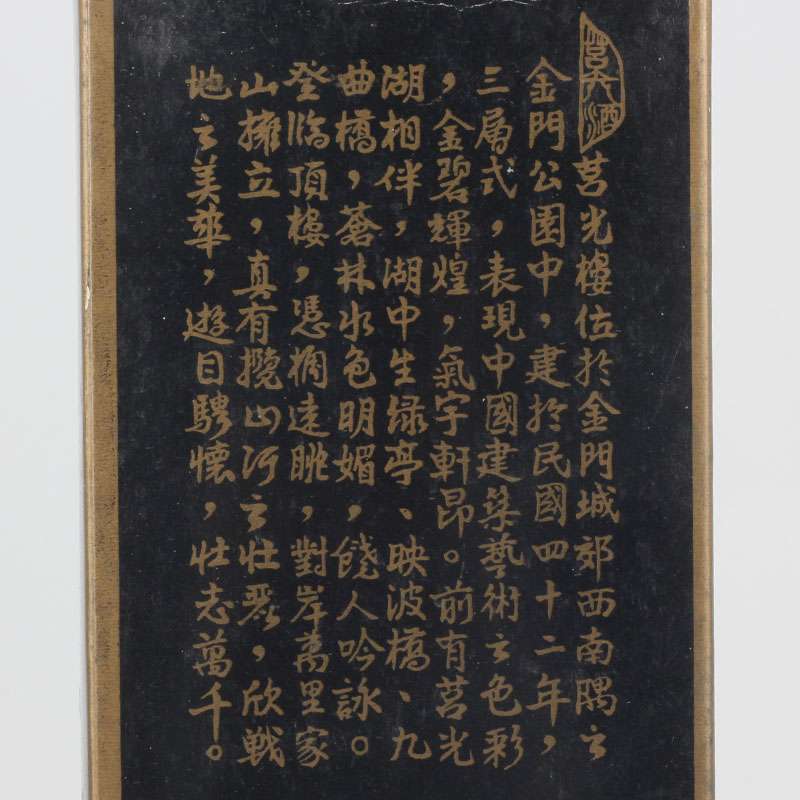 莒光酒
莒光樓位於金門城郊西南隅之
金門公園中，建於民國四十二年，
三層式，表現中國建築藝術之色彩
，金碧輝煌，氣宇軒昂。前有莒光
湖相伴，湖中生緑亭、映波橋、九
曲橋，蒼林水色明媚，饒人吟詠。
登臨頂樓，憑欄遠眺，對岸萬里家
山擁立，真有攬山河之壯麗，欣戰
地之美華，遊目騁懷，壯志萬千。